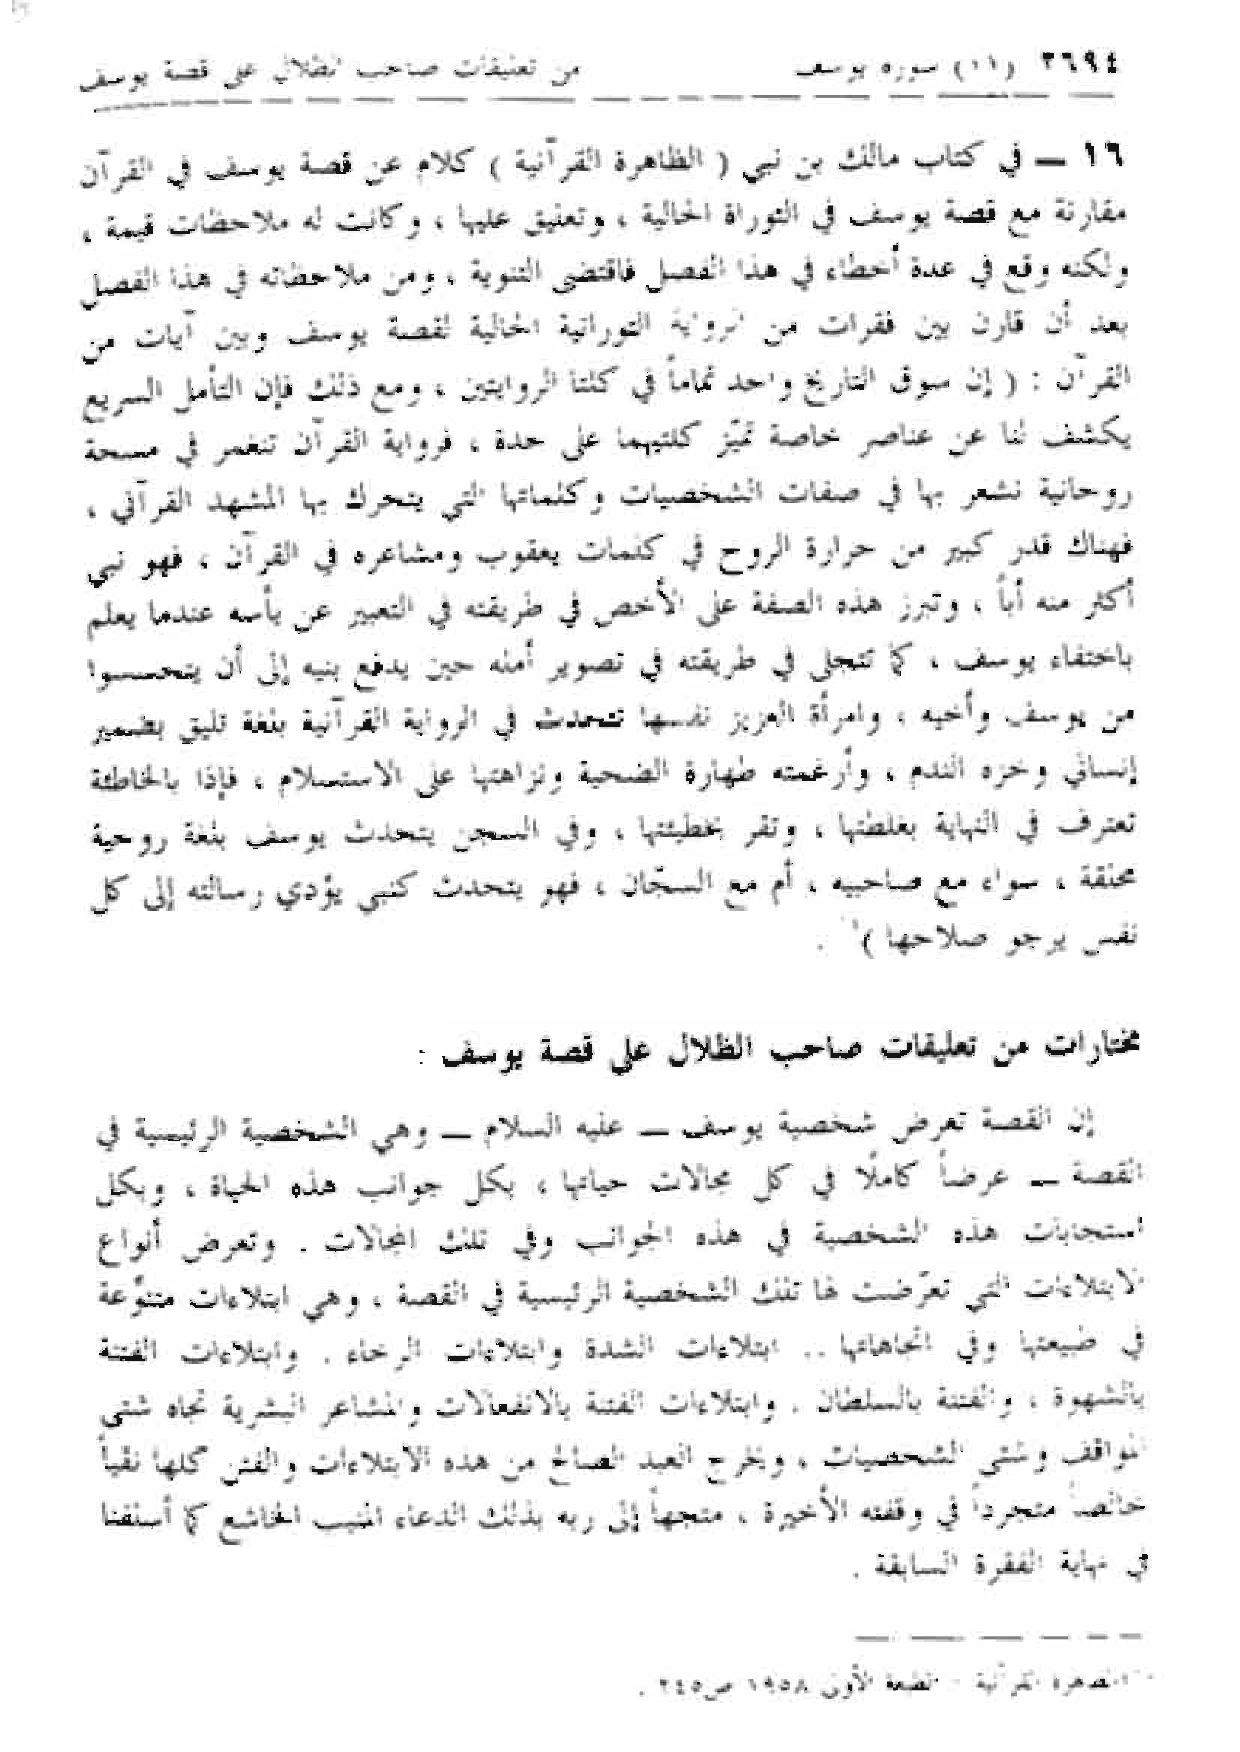 ٢٦٩٤ (١٢) سورة يوسف من تعليقات صاحب الظلال على قصة يوسف
١٦ ــ في كتاب مالك بن نبي ( الظاهرة القرآنية ) كلام عن قصة يوسف في القرآن
مقارنة مع قصة يوسف في التوراة الحالية ، وتعليق عليها ، وكانت له ملاحظات قيمة ،
ولكنه وقع في عدة أخطاء في هذا الفصل فاقتضى التنوية ، ومن ملاحظاته في هذا الفصل
بعد أن قارن بين فقرات من الرواية التوراتية الحالية لقصة يوسف وبين آيات من
القرآن : ( إن سوق التاريخ واحد تماماً في كلتا الروايتين ، ومع ذلك فإن التأمل السريع
يكشف لنا عن عناصر خاصة تميّز كلتيهما على حدة ، فرواية القرآن تنغمر في مسحة
روحانية نشعر بها في صفات الشخصيات وكلماتها التي يتحرك بها المشهد القرآني ،
فهناك قدر كبير من حرارة الروح في كلمات يعقوب ومشاعره في القرآن ، فهو نبي
أكثر منه أباً ، وتبرز هذه الصفة على الأخص في طريقته في التعبير عن يأسه عندما يعلم
باختفاء يوسف ، كما تتجلى في طريقته في تصوير أمله حين يدفع بنيه إلى أن يتحسسوا
من يوسف وأخيه ، وامرأة العزيز نفسها تتحدث في الرواية القرآنية بلغة تليق بضمير
إنساني وخزه الندم ، وأرغمته طهارة الضحية ونزاهتها على الاستسلام ، فإذا بالخاطئة
تعترف في النهاية بغلطتها ، وتقر بخطيئتها ، وفي السجن يتحدث يوسف بلغة روحية
محلقة ، سواء مع صاحبيه ، أم مع السجّان ، فهو يتحدث كنبي يؤدي رسالته إلى كل
نفس يرجو صلاحها ) .
مختارات من تعليقات صاحب الظلال على قصة يوسف :
إن القصة تعرض شخصية يوسف ــ عليه السلام ــ وهي الشخصية الرئيسية في
القصة ــ عرضاً كاملًا في كل مجالات حياتها ، بكل جوانب هذه الحياة ، وبكل
استجابات هذه الشخصية في هذه الجوانب وفي تلك المجالات . وتعرض أنواع
الابتلاءات التي تعرّضت لها تلك الشخصية الرئيسية في القصة ، وهي ابتلاءات متنوّعة
في طبيعتها وفي اتجاهاتها .. ابتلاءات الشدة وابتلاءات الرخاء . وابتلاءات الفتنة
بالشهوة ، والفتنة بالسلطان . وابتلاءات الفتنة بالانفعالات والمشاعر البشرية تجاه شتى
المواقف وشتى الشخصيات ، ويخرج العبد الصالح من هذه الابتلاءات والفتن كلها نقياً
خالصاً متجرداً في وقفته الأخيرة ، متجهاً إلى ربه بذلك الدعاء المنيب الخاشع كما أسلفنا
في نهاية الفقرة السابقة .
الظاهرة القرآنية - الطبعة الأولى ١٩٥٨ ص٢٤٥ .